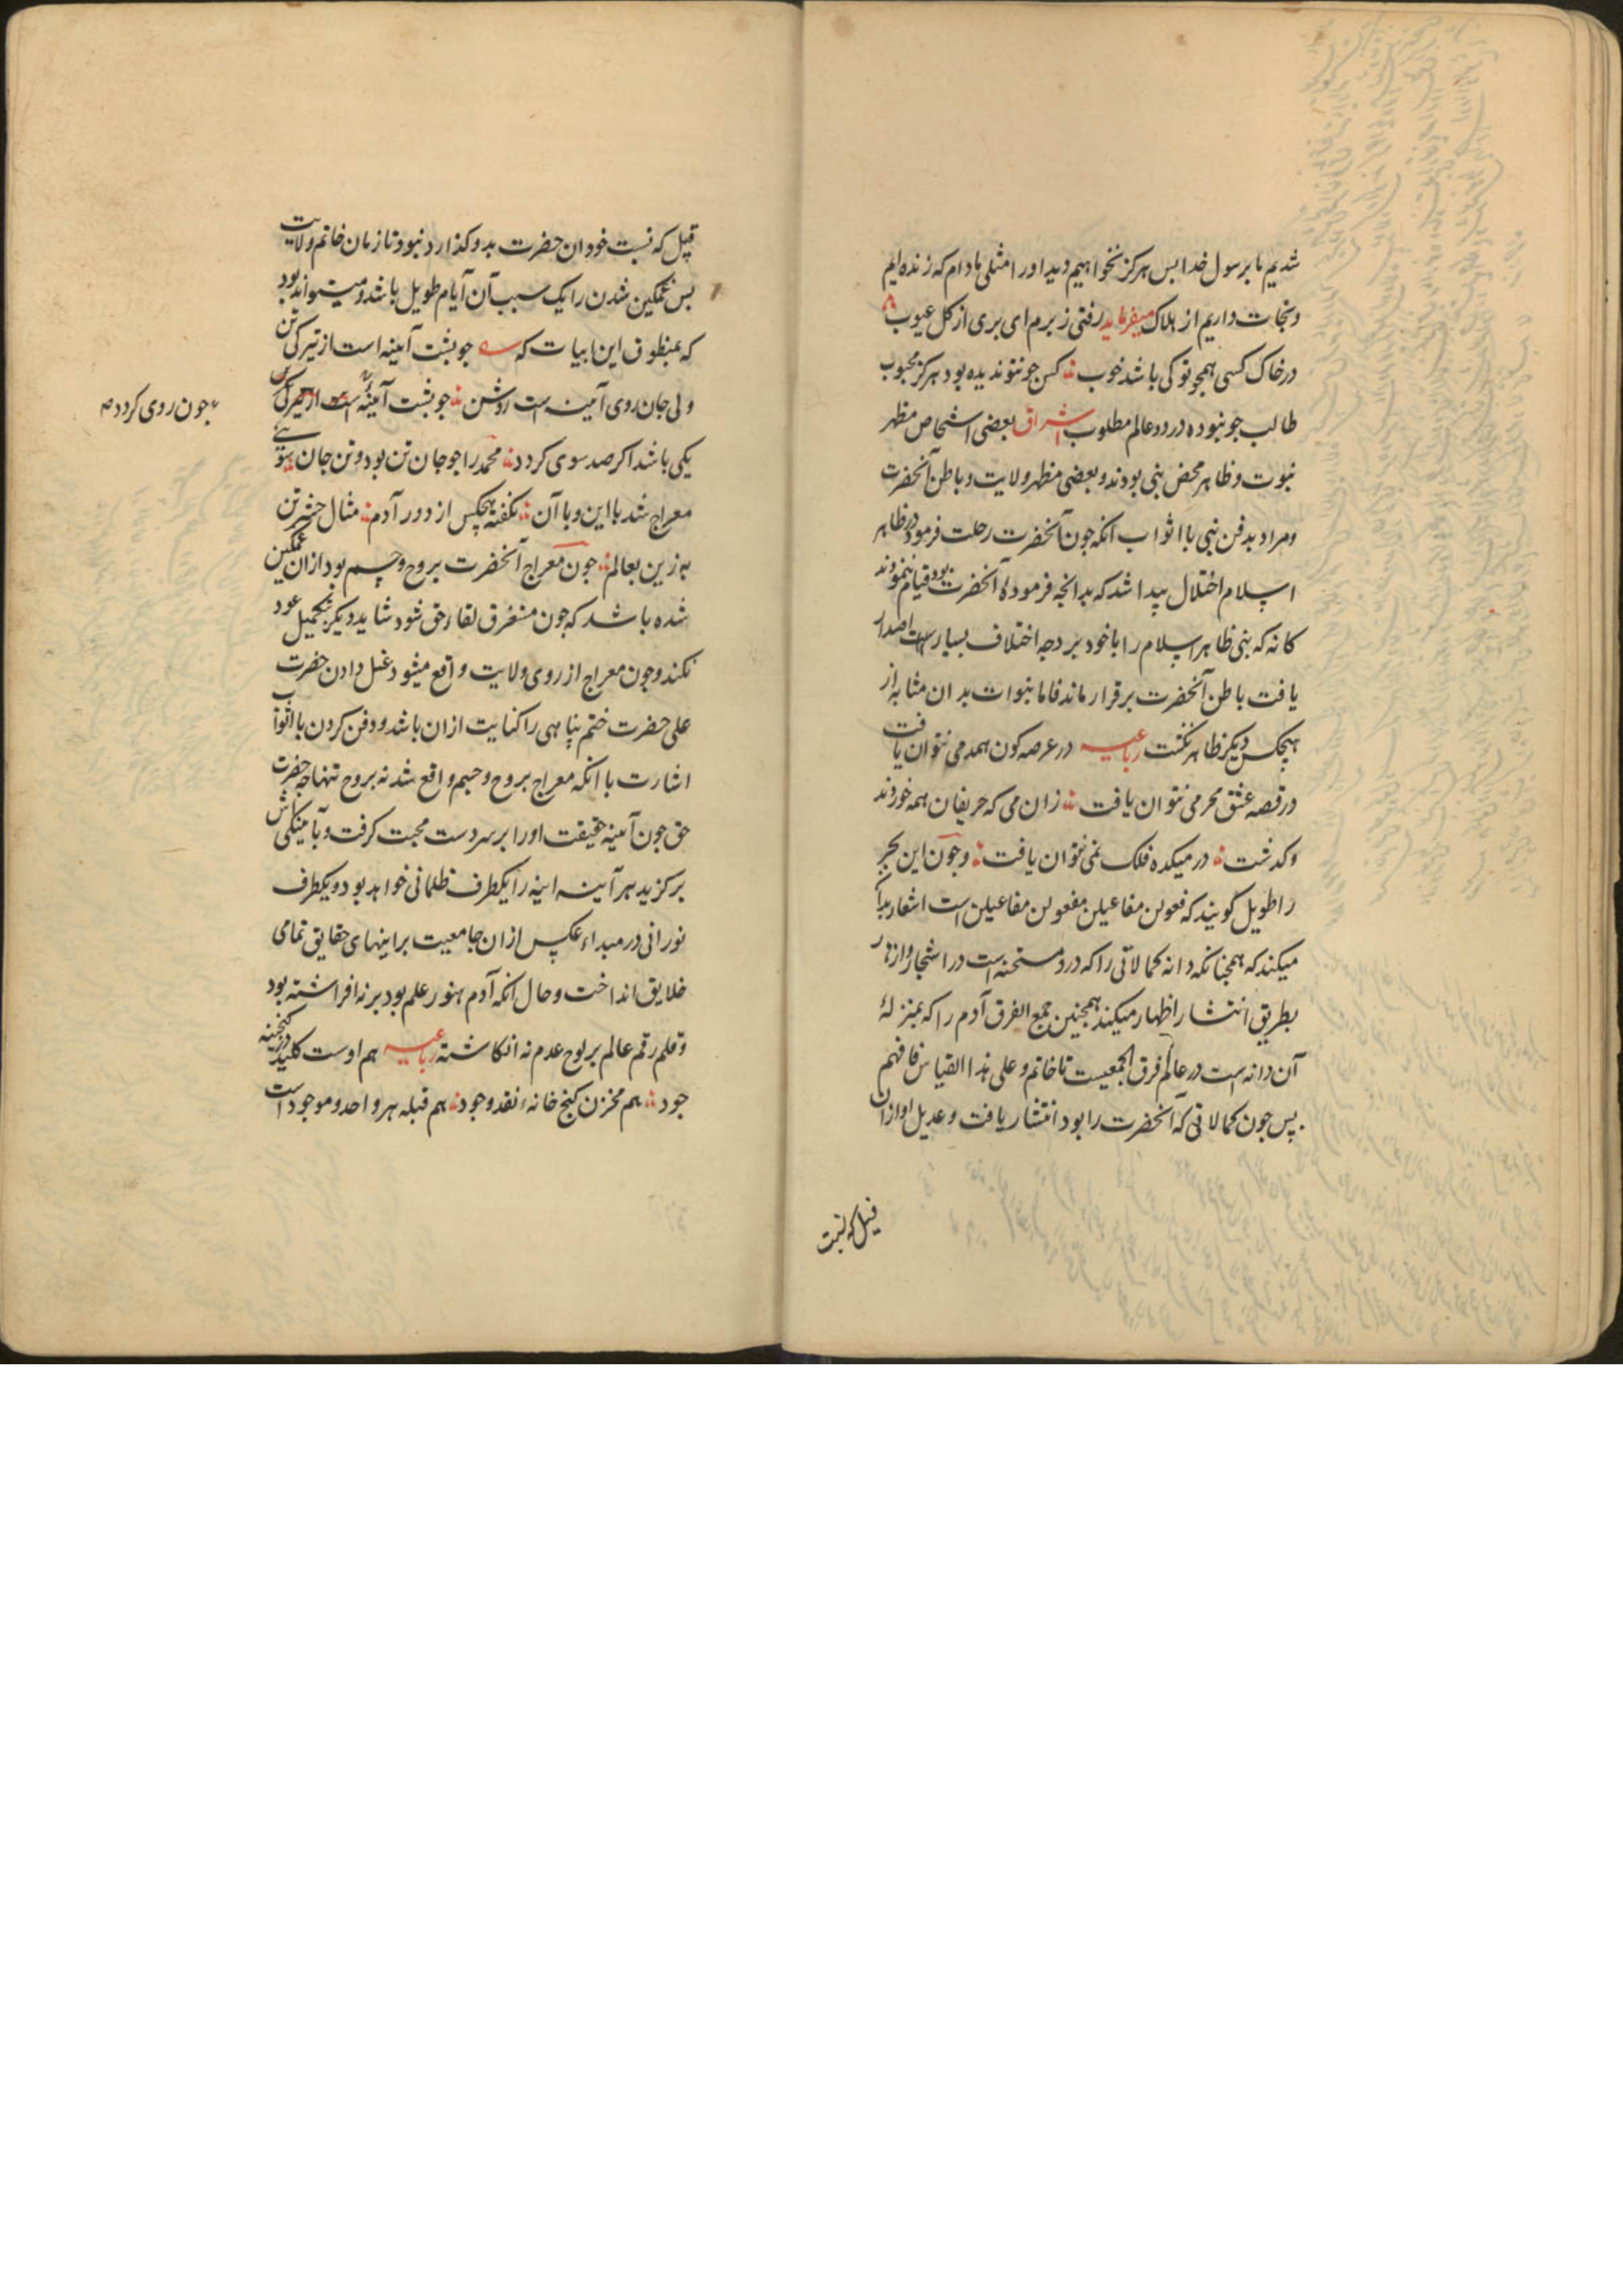 شدیم ما برسول خدا بس هرکز نخواهیم دید اورا مثلی مادام که زنده ایم
و نجات داریم از هلاک میفرماید رفتی ز برم ای بری از کل عیوب
در خاک کسی همچو تو کی باشد خوب کس جو نتو ندیده بود هرکز محبوب
طالب جو نبوده در دو عالم مطلوب اشراق بعضی اشخاص مظهر
نبوت و ظاهر محض نبی بودند و بعضی مظهر ولایت و باطن آنحضرت
و مراد بدفن نبی با اثواب انکه جون آنحضرت رحلت فرمود در ظاهر
اسلام اختلال پیدا شد که بدانجه فرموده آنحضرت بود قیام ننمودند
کانه که نبی ظاهر اسلام را با خود برد جه اختلاف بسیار است اصدار
یافت باطن آنحضرت برقرار ماند فاما نبوات بدان مثابه از
هیجکس دیکر ظاهر نکشت رباعیه در عرصه کون همدمی نتوان یافت
در قصه عشق محرمی نتوان یافت زان می که حریفان همه خوردند
و کدشت در میکده فلک نمی نتوان یافت و جون این بحر
را طویل کویند که فعولن مفاعیلن مفعولن مفاعیلن است اشعار بدا
میکند که همجنانکه دانه کمالاتی را که درو مستحنه است در اشجار و ازهار
بطریق انتشار اظهار میکند همجنین جمع الفرق آدم را که بمنزلهٔ
آن دانه است در عالم فرق الجمعیست تا خاتم و علی هذا القیاس فافهم
پس جون کمالاتی که آنحضرت را بود انتشار یافت و عدیل او ازان
قبیل که نسبت
قبیل که نسبت خود ان حضرت بدو کذارد نبود تا زمان خاتم ولایت
بس غمکین شدن را یک سبب آن آیام طویل باشد و میتواند بود
که بمنظوق این ابیات که جو بشت آینه است از تیرکی تن
ولی جان روی آینه است روشن جو بشت آینه است از تیرکی
جون روی کردد
یکی باشد اکر صد سوی کردد محمد را جو جان تن بود و تن جان سوی
معراج شد با این و با آن نکفته هیجکس از دور آدم مثال حشر تن
به زین بعالم جون معراج آنحضرت بروح و جسم بود ازان غمکین
شده باشد که جون مستغرق لقا ء حق شود شاید دیکر بتکمیل عود
نکند و جون معراج از روی ولایت واقع میشود غسل دادن حضرت
علی حضرت ختم پناهی را کنایت ازان باشد و دفن کردن با اثواب
اشارت با انکه معراج بروح و جسم واقع شد نه بروح تنها جه حضرت
حق جون آینه حقیقت اورا بر سر دست محبت کرفت و بآمینکی
برکزید هر آینه اینه را یکطرف ظلمانی خواهد بود و یکطرف
نورانی در مبداء عکس ازان جامعیت بر اینهای حقایق تمامی
خلایق انداخت و حال انکه آدم هنوز علم بود بر نه افراشته بود
و قلم رقم عالم بر لوح عدم نه انکاشته رباعیه هم اوست کلید در کنجینه
جود هم مخزن کنج خانهء نقد وجود هم قبله هر واحد و موجود است